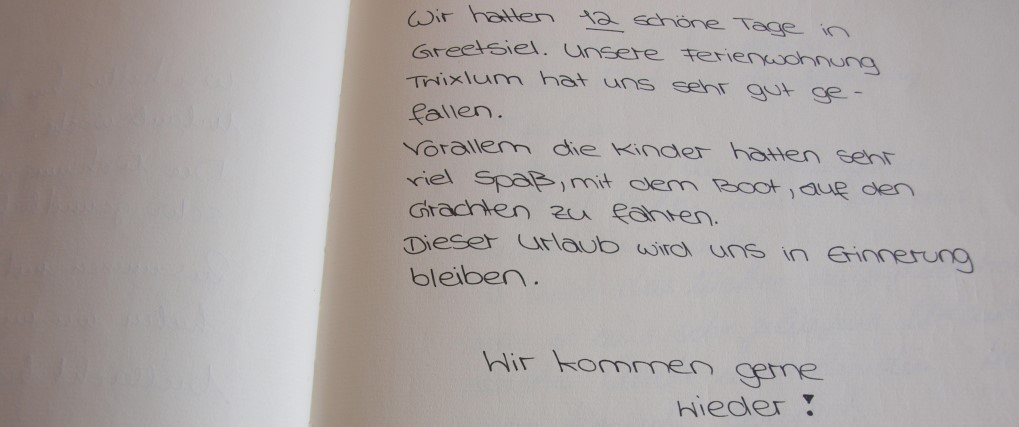 Wir hatten 12 schöne Tage in
Greetsiel. Unsere Ferienwohnung
Twixlum hat uns sehr gut ge-
fallen.
Vorallem die Kinder hatten sehr
viel Spaß, mit dem Boot, auf den
Grachten zu fahren.
Dieser Urlaub wird uns in Erinnerung
bleiben.
Wir kommen gerne
wieder!